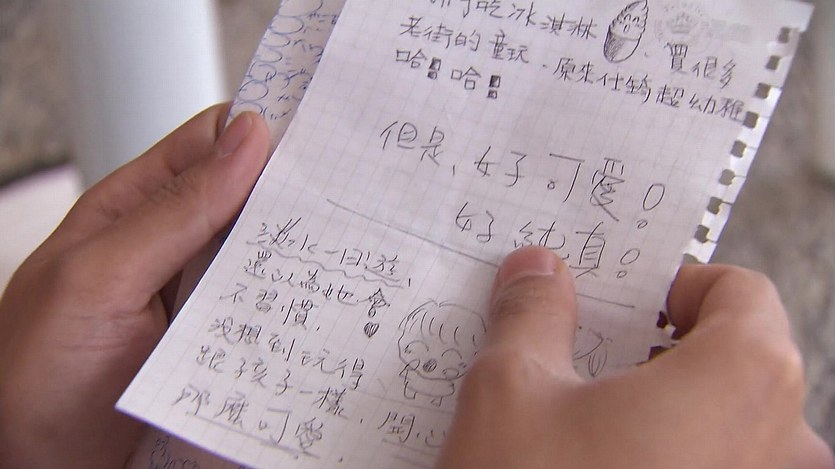 吃冰淇淋
老街的童玩，原來仕鈞超幼稚
買很多
哈！哈！
但是、好可愛！
好純真！
淡水一日遊，
還以為他會
不習慣，
沒想到玩得
跟孩子一樣，開心
那麼可愛，